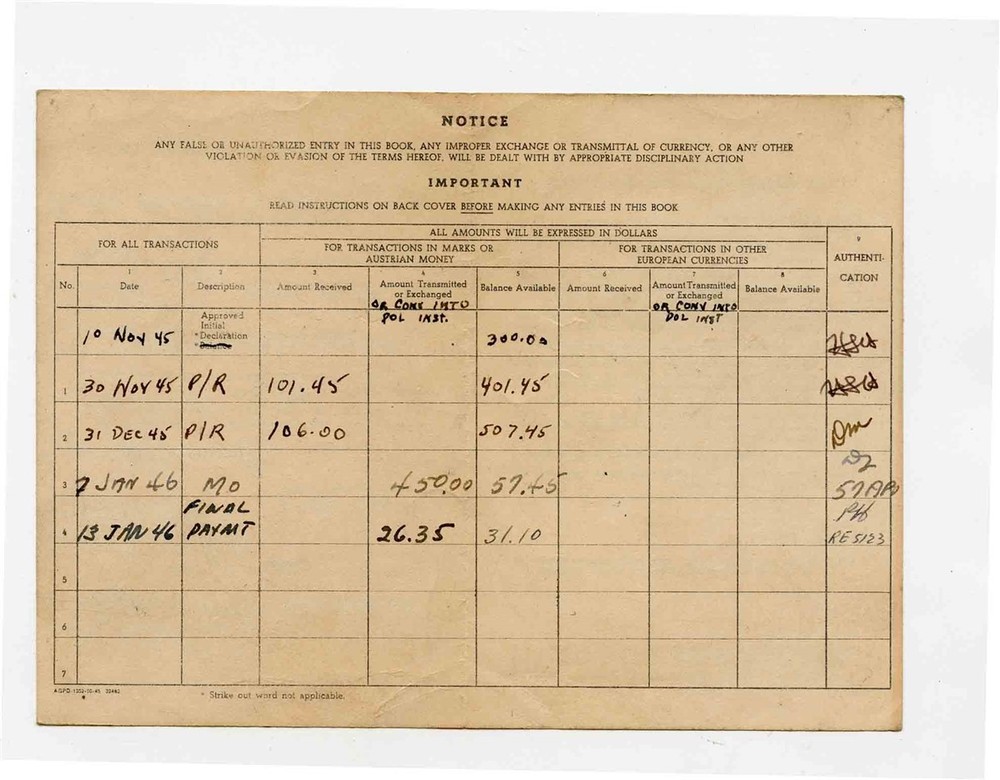 NOTICE
ANY FALSE OR UNAUTHORIZED ENTRY IN THIS BOOK, ANY IMPROPER EXCHANGE OR TRANSMITTAL OF CURRENCY, OR ANY OTHER
VIOLATION OR EVASION OF THE TERMS HEREOF, WILL BE DEALT WITH BY APPROPRIATE DISCIPLINARY ACTION
IMPORTANT
READ INSTRUCTIONS ON BACK COVER BEFORE MAKING ANY ENTRIES IN THIS BOOK
FOR ALL TRANSACTIONS
ALL AMOUNTS WILL BE EXPRESSED IN DOLLARS
FOR TRANSACTIONS IN MARKS OR
AUSTRIAN MONEY
FOR TRANSACTIONS IN OTHER
EUROPEAN CURRENCIES
9
AUTHENTI-
CATION
No.
1
Date
2
Description
3
Amount Received
4
Amount Transmitted
or Exchanged
OR CONV INTO
POL INST.
5
Balance Available
6
Amount Received
7
Amount Transmitted
or Exchanged
OR CONV INTO
POL INST
8
Balance Available
10 Nov 45 Approved
Initial
*Declaration
*Balance
300.00
1 30 NOV 45 P/R 101.45 401.45
2 31 DEC 45 P/R 106.00 507.45 Dm
3 7 JAN 46 MO 450.00 57.45 57 APO
4 13 JAN 46 FINAL PAYMT 26.35 31.10
5
6
7
* Strike out word not applicable.